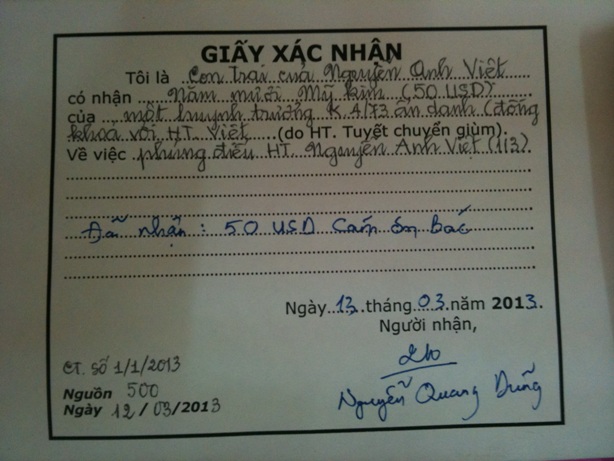 GIẤY XÁC NHẬN
Tôi là Con trai của Nguyễn Anh Việt
có nhận Năm mươi Mỹ kim (50 USD)
của một huynh trưởng K.4/73 ẩn danh (đồng
khóa với HT. Việt (do HT. Tuyết chuyển giùm).
Về việc phúng điếu HT. Nguyễn Anh Việt (1/3)
Đã nhận : 50 USD Cám ơn Bác
Ngày 13 tháng 03 năm 2013.
Người nhận,
Nguyễn Quang Dũng
CT. số 1/1/2013
Nguồn 500
Ngày 12/03/2013